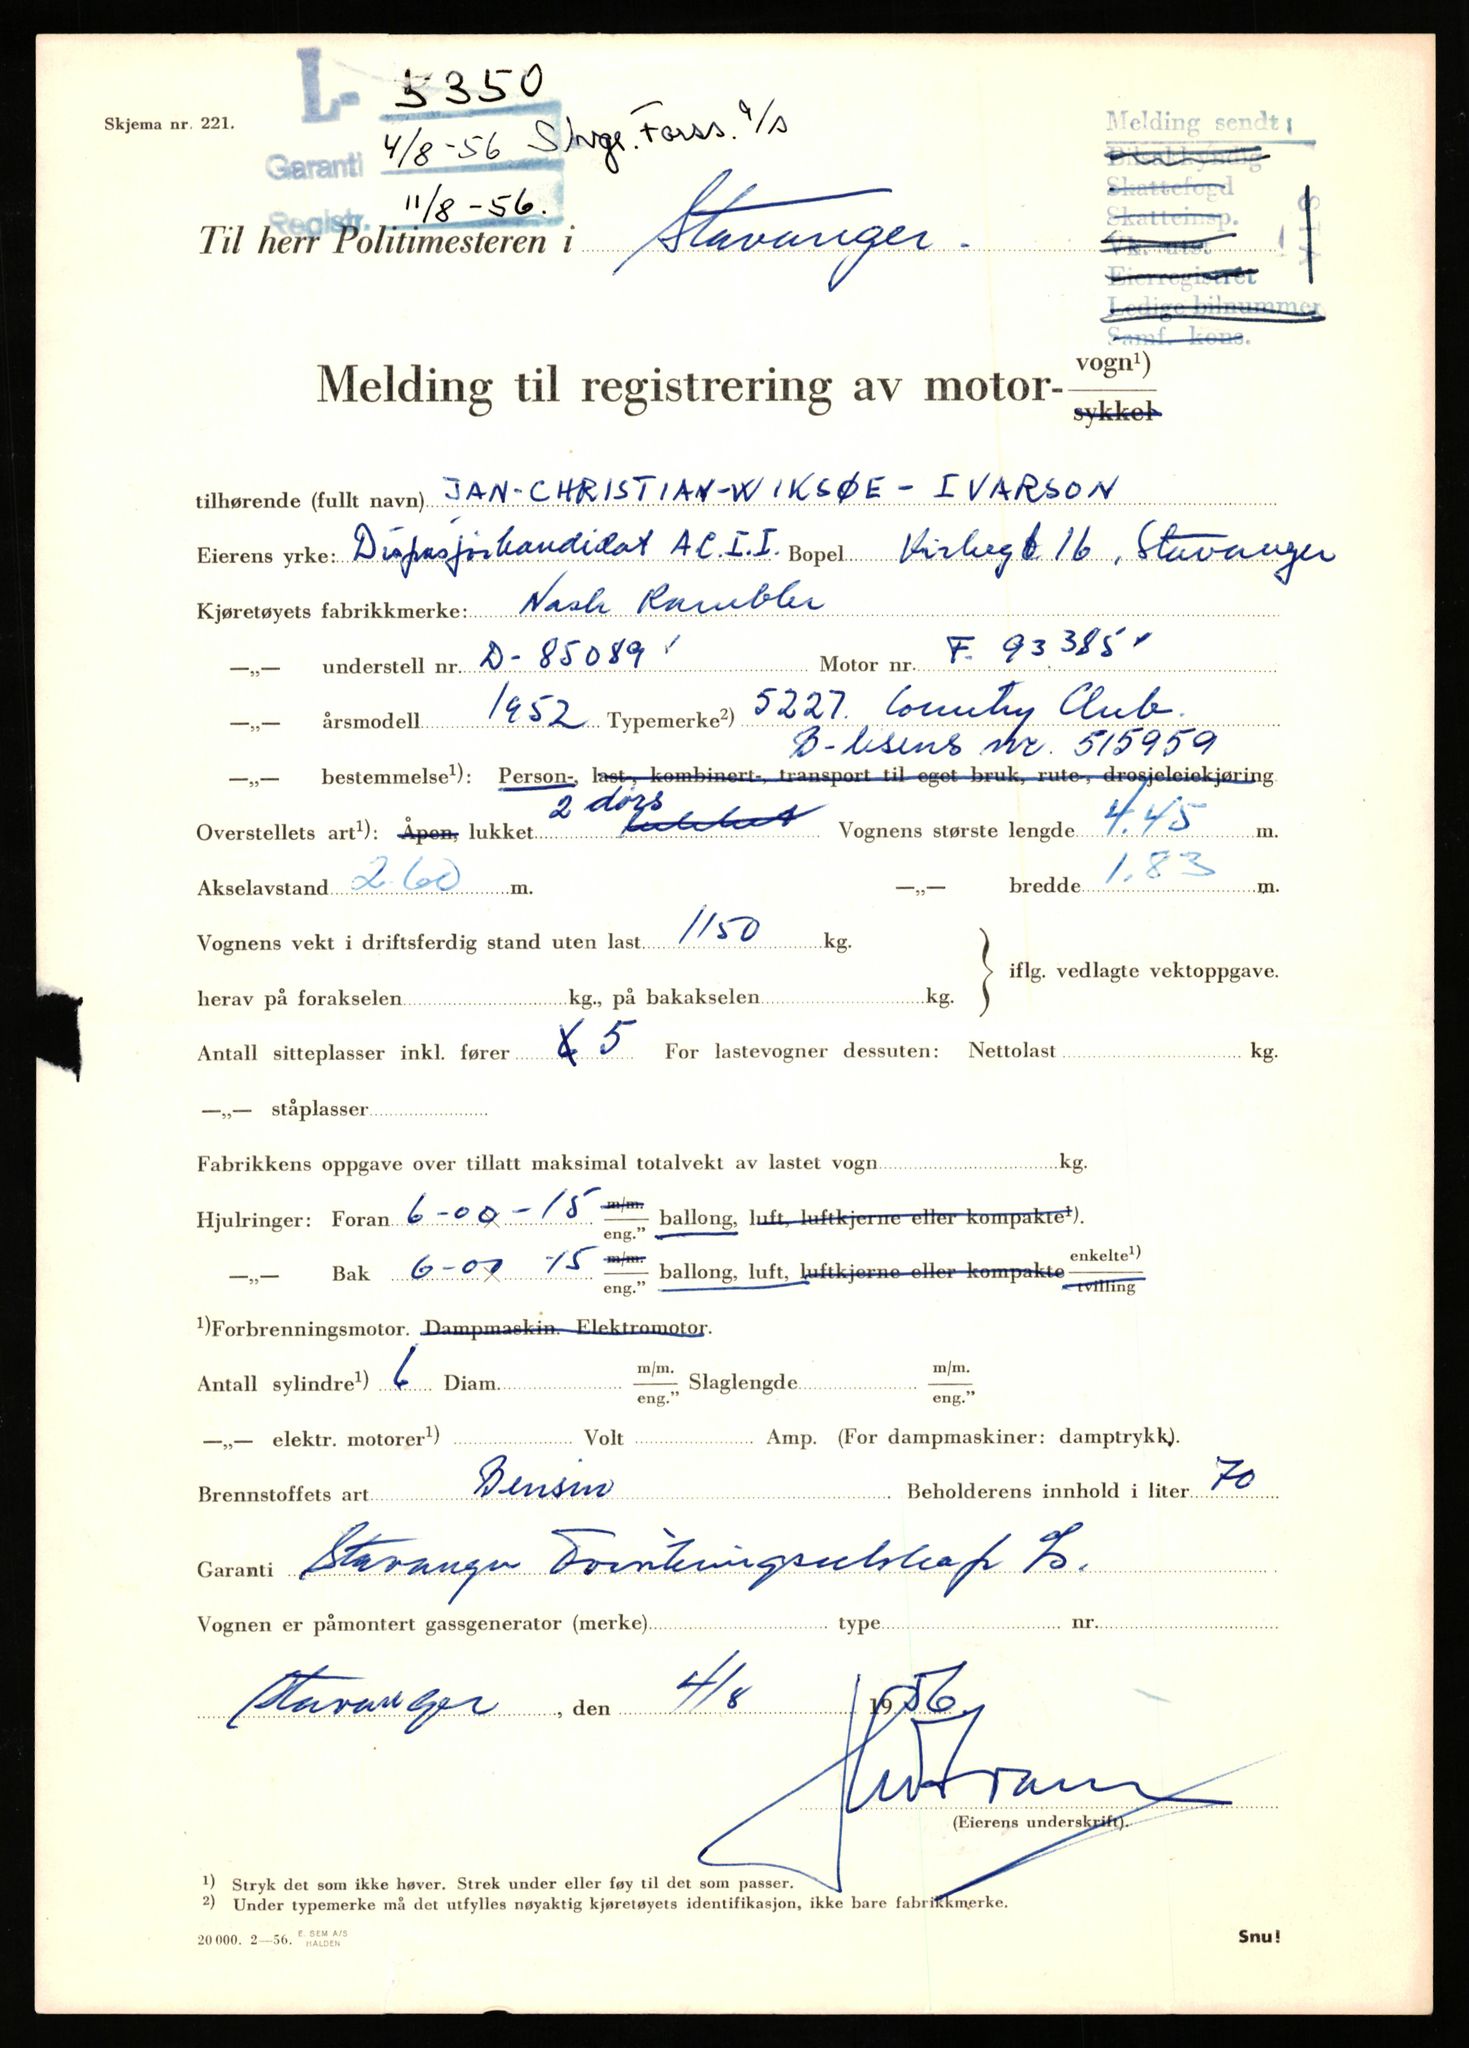 L- 5350
Skjema nr. 221.
Garanti 4/8-56 Stvgr. Forss. A/S
Registr. 11/8-56.
Melding sendt:
Bilsakkyndig
Skattefogd
Skatteinsp.
Vk. utst
Eierregistret
Ledige bilnummer
Samf. kons.
Til herr Politimesteren i Stavanger.
Melding til registrering av motor- vogn¹)
sykkel
tilhørende (fullt navn) JAN-CHRISTIAN-WIKSØE-IVARSON
Eierens yrke: Dispasjørkandidat A.C.I.I. Bopel Kirkegt 16, Stavanger
Kjøretøyets fabrikkmerke: Nash Rambler
—„— understell nr. D-85089 Motor nr. F. 93385
—„— årsmodell 1952 Typemerke²) 5227. Country Club.
B-lisens nr. 515959
—„— bestemmelse¹): Person-, last-, kombinert-, transport til eget bruk, rute-, drosjeleiekjøring
2 dørs
Overstellets art¹): Åpen, lukket Vognens største lengde 4.45 m.
Akselavstand 2.60 m. —„— bredde 1.83 m.
Vognens vekt i driftsferdig stand uten last 1150 kg.
iflg. vedlagte vektoppgave.
herav på forakselen kg., på bakakselen kg.
Antall sitteplasser inkl. fører 5 For lastevogner dessuten: Nettolast kg.
—„— ståplasser
Fabrikkens oppgave over tillatt maksimal totalvekt av lastet vogn kg.
Hjulringer: Foran 6-00-15 m/m. eng.” ballong, luft, luftkjerne eller kompakte¹).
—„— Bak 6-00 -15 m/m. eng.” ballong, luft, luftkjerne eller kompakte enkelte¹) tvilling
¹)Forbrenningsmotor. Dampmaskin. Elektromotor.
Antall sylindre¹) 6 Diam. m/m. eng.” Slaglengde m/m. eng.”
—„— elektr. motorer¹) Volt Amp. (For dampmaskiner: damptrykk).
Brennstoffets art Bensin Beholderens innhold i liter 70
Garanti Stavanger Forsikringsselskap A/S.
Vognen er påmontert gassgenerator (merke) type nr.
Stavanger, den 4/8 1956
(Eierens underskrift).
¹) Stryk det som ikke høver. Strek under eller føy til det som passer.
²) Under typemerke må det utfylles nøyaktig kjøretøyets identifikasjon, ikke bare fabrikkmerke.
20 000. 2—56. E. SEM A/S HALDEN
Snu!